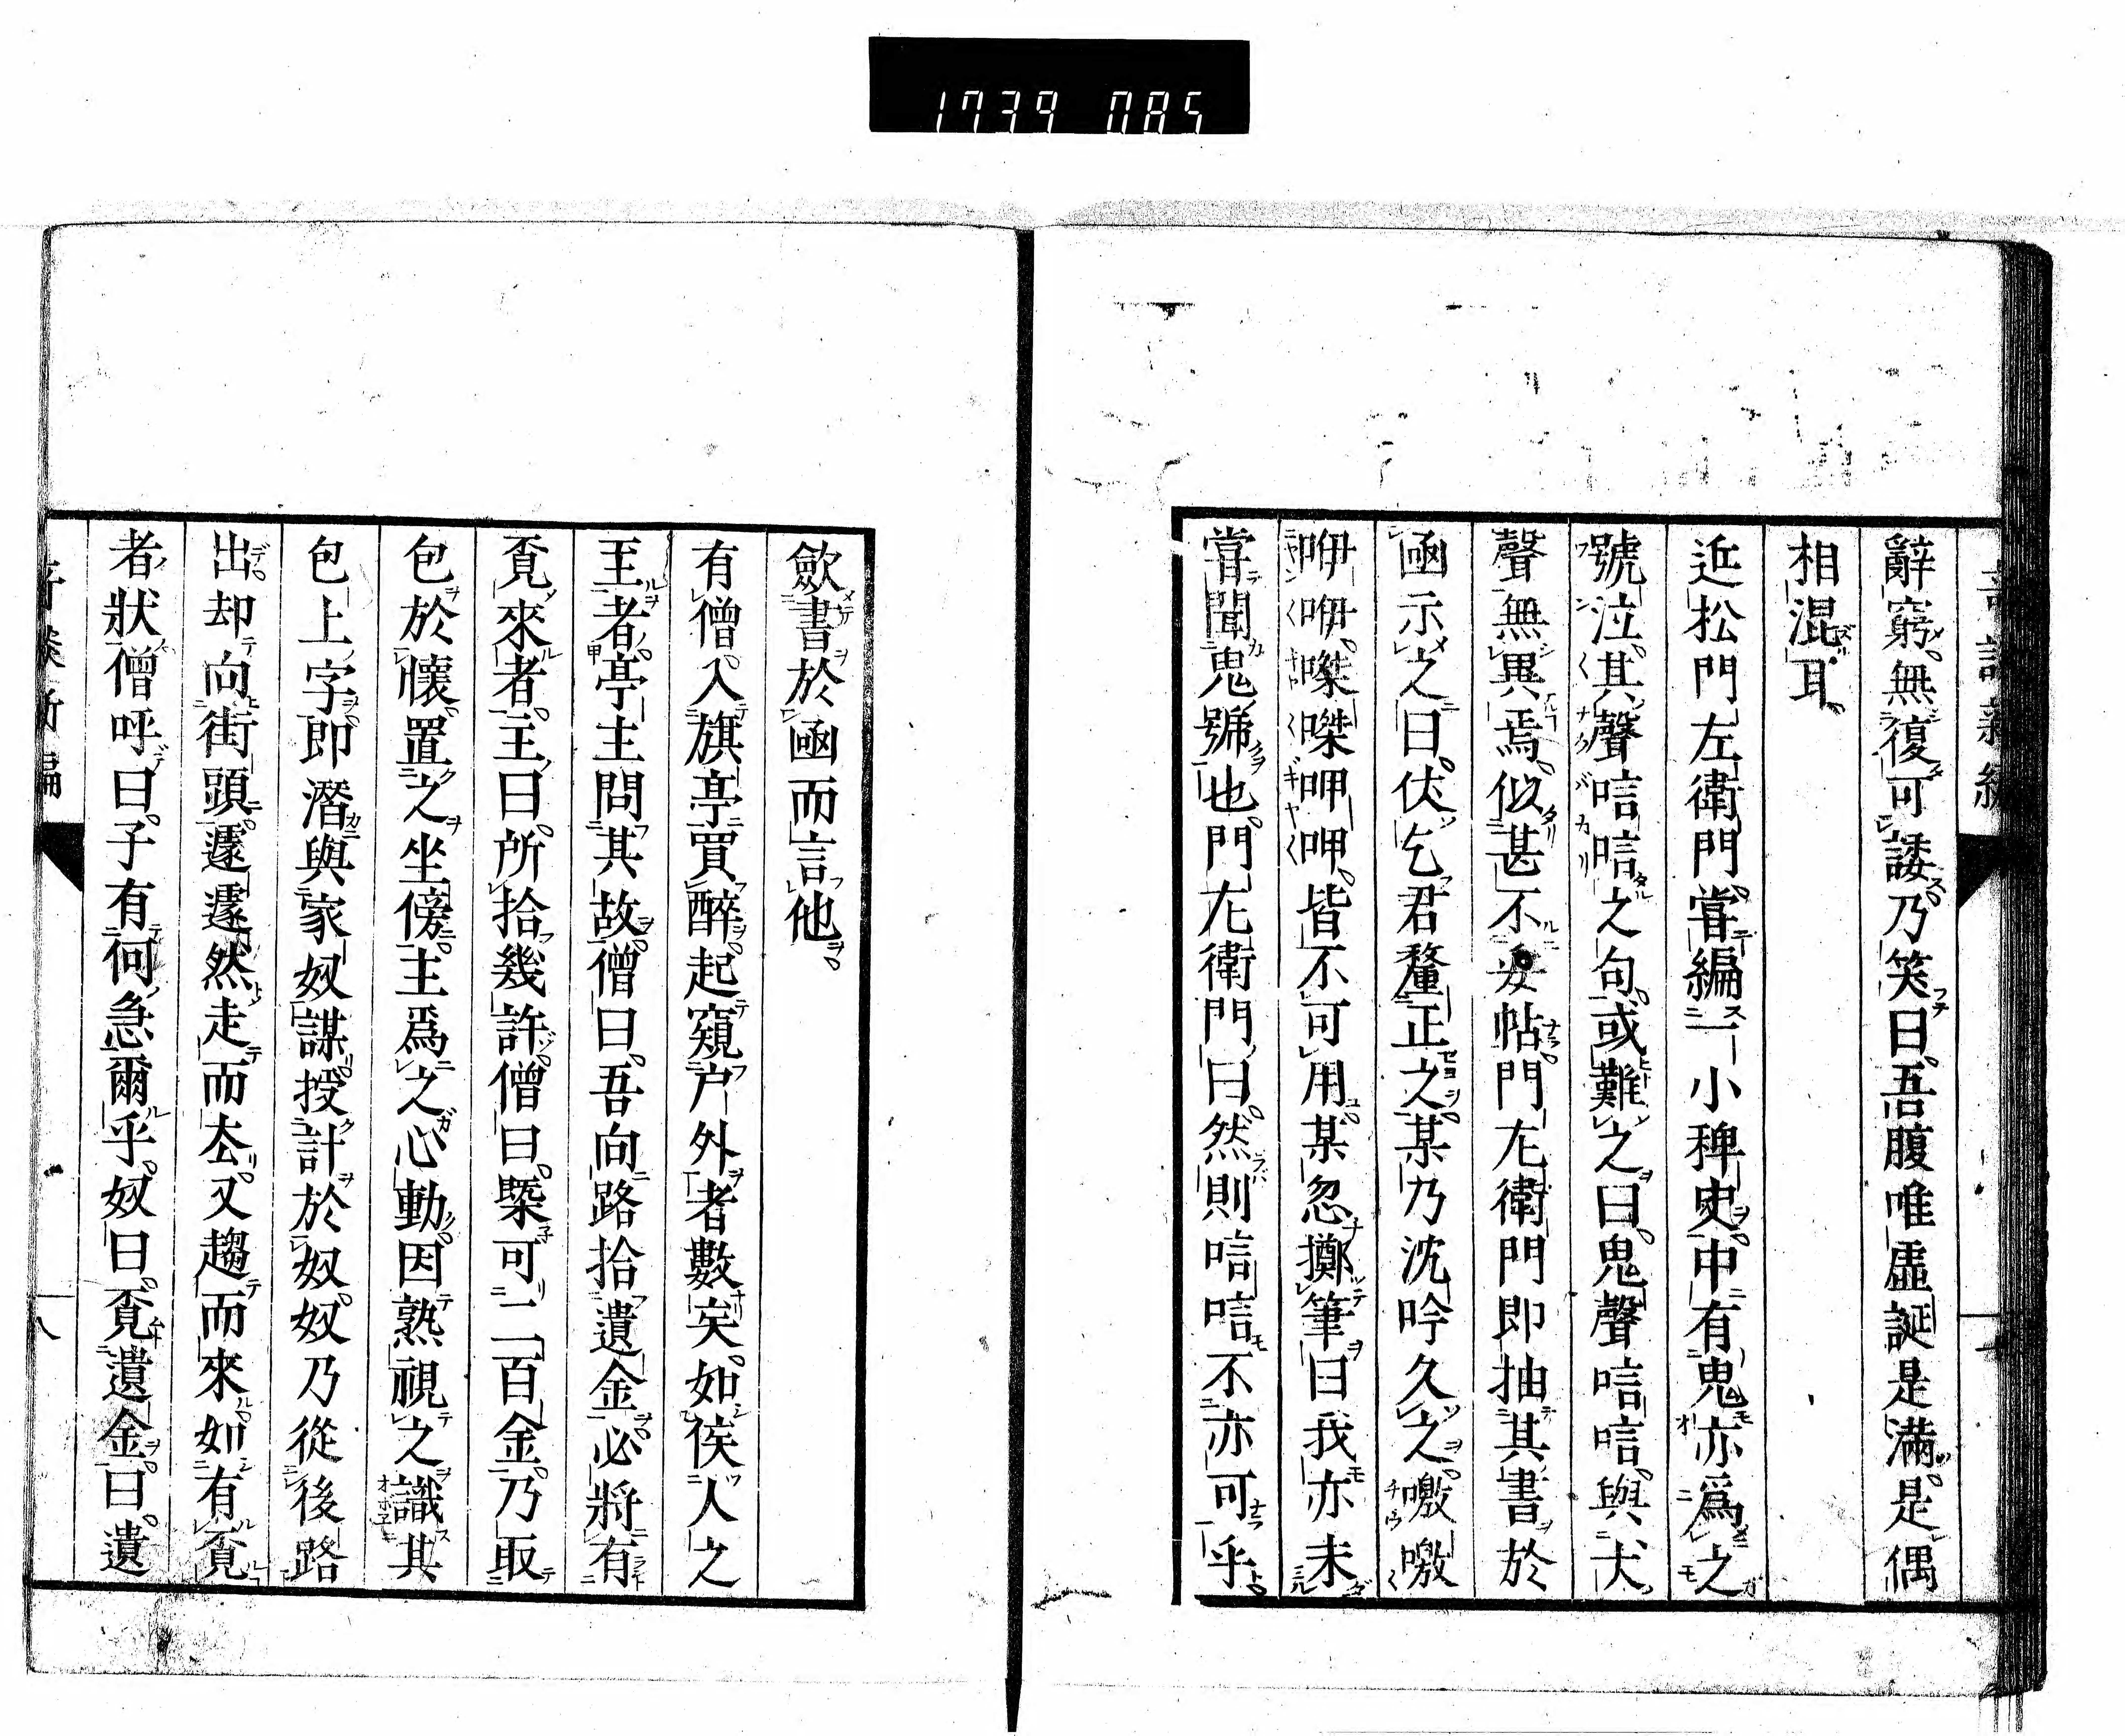 1739 085
辭窮無復可諉乃笑曰吾腹唯虛誕是滿是偶
相混耳
近松門左衛門嘗編一小稗史中有鬼亦爲之
號泣其聲唁唁之句或難之曰鬼聲唁唁與犬
聲無異焉似甚不妥帖門左衛門即抽其書於
凾示之曰伏乞君釐正之某乃沈吟久之噭噭
咿咿㗫㗫呷呷皆不可用某忽擲筆曰我亦未
嘗聞鬼號也門左衛門曰然則唁唁不亦可乎
歛書於凾而言他
有僧入旗亭買醉起窺戶外者數矣如俟人之
至者亭主問其故僧曰吾向路拾遺金必將有
覔來者主曰所拾幾許僧曰槩可二百金乃取
包於懷置之坐傍主爲之心動因熟視之識其
包上字即潛與家奴謀授計於奴奴乃從後路
出却向街頭遽遽然走而去又趨而來如有覔
者狀僧呼曰子有何急爾乎奴曰覔遺金曰遺
八